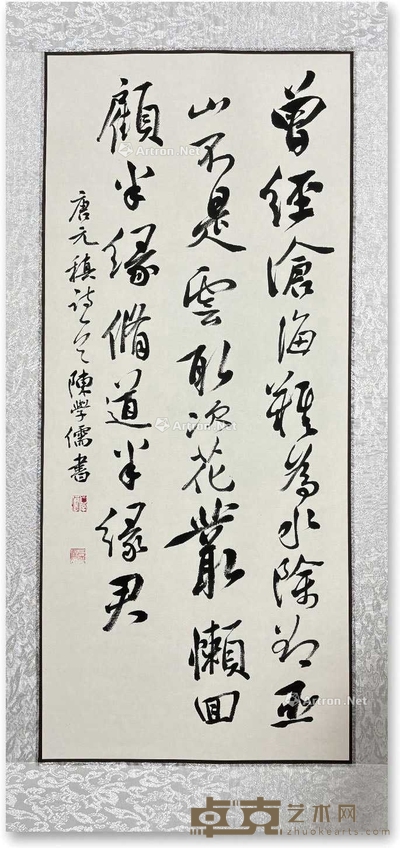 曾經滄海難為水除却巫
山不是雲取次花叢懶回
顧半緣脩道半緣君
唐元稹詩一首陳學儒書
Artron.Net
Artron.Net
Artron.Net
Artron.Net
卓克艺术网
zhuokearts.com